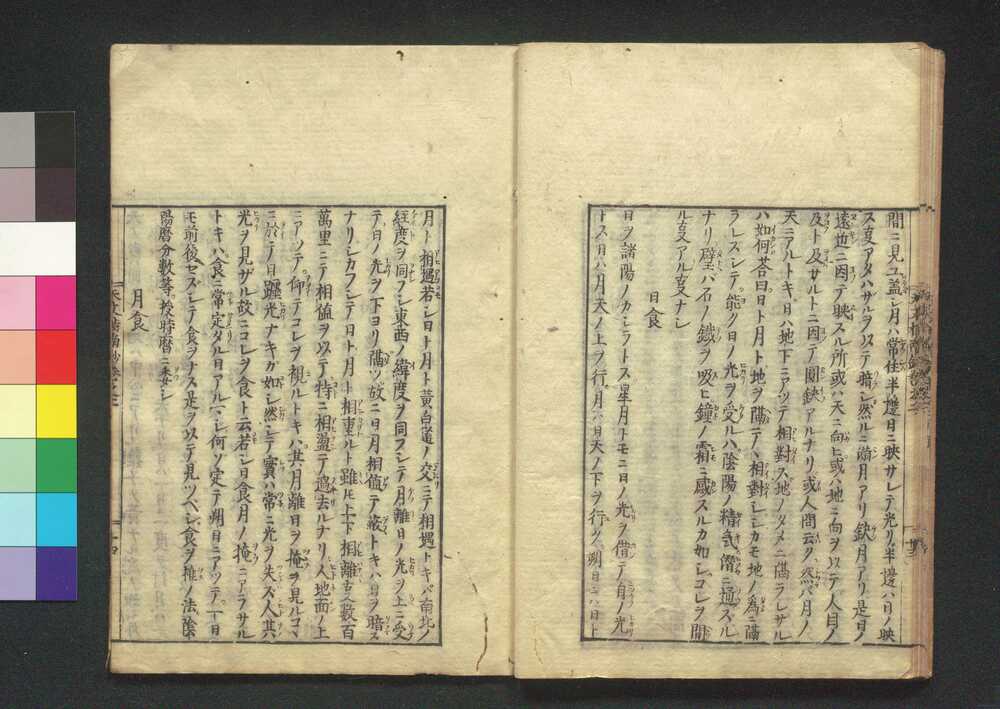 間ニ見ユ蓋シ月ハ常住半邊日ニ映サレテ光リ半邊ハ日ノ映
ス夏アタハサルヲ以テ暗シ然ルニ満月アリ缺月アリ是日ノ
遠近ニ因テ映スル所或ハ天ニ向ヒ或ハ地ニ向ヲ以テ人目ノ
及ト及サルトニ因テ圓缺アルナリ或人問云ク然ハ月ノ
天ニアルトキ日ハ地下ニアツテ相對ス地ノタメニ隔ラレサル
ハ如何答曰日ト月ト地ヲ隔テヽ相對シシカモ地ノ為ニ隔
ラレズシテ能ク日ノ光ヲ受ルハ陰陽ノ精氣潛ニ通スル
ナリ譬バ石ノ鐡ヲ吸ヒ鐘ノ霜ニ感スルカ如シコレヲ間
ル夏アル夏ナシ
日食
日ヲ諸陽ノカシラトス星月トモニ日ノ光ヲ借テ自ノ光
トス日ハ月天ノ上ヲ行月ハ日天ノ下ヲ行ク朔日ニハ日ト
月ト相遇若シ日ト月ト黄白道ノ交ニテ相遇トキハ南北ノ
經度ヲ同フシ東西ノ緯度ヲ同フシテ月離日ノ光ヲ上ニ受
テ日ノ光ヲ下ヨリ隔ツ故ニ日月相値テ蔽トキハ日ヲ暗ス
ナリシカフシテ日ト月ト相重ルト雖モ上下相離ヿ数百
萬里ニテ相値ヲ以テ特ニ相盪テ過去ルナリ人地面ノ上
ニアツテ仰テコレヲ視ルトキハ其月離日ヲ掩ヲ見ルコヽ
ニ於テ日體光ナキガ如シ然シテ實ハ常ニ光ヲ失ズ人其
光ヲ見ザル故ニコレヲ食ト云若シ日食月ノ掩ニアラサル
トキハ食ニ常定タル日アルヘシ何ソ定テ朔日ニアツテ一日
モ前後セズシテ食ヲナス是ヲ以テ見ツベシ食ヲ推ノ法陰
陽暦分数等授時暦ニ委シ
月食